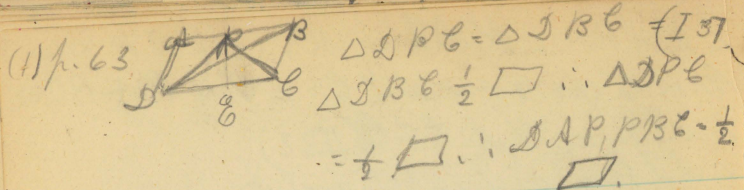 (1) p. 63
A P B
D E C
△DPC = △DBC = (I 37)
△DBC ½ ▱ ∴ △DPC
= ½ ▱ ∴ DAP, PBC = ½
▱.